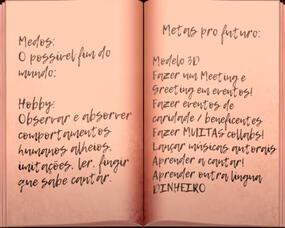 Medos:
O possível fim do
mundo;
Hobby:
Observar e absorver
comportamentos
humanos alheios,
imitações, ler, fingir
que sabe cantar.
Metas pro futuro:
Modelo 3D
Fazer um Meeting e
Greeting em eventos!
Fazer eventos de
caridade / beneficentes
Fazer MUITAS collabs!
Lançar músicas autorais
Aprender a cantar!
Aprender outra língua
DINHEIRO